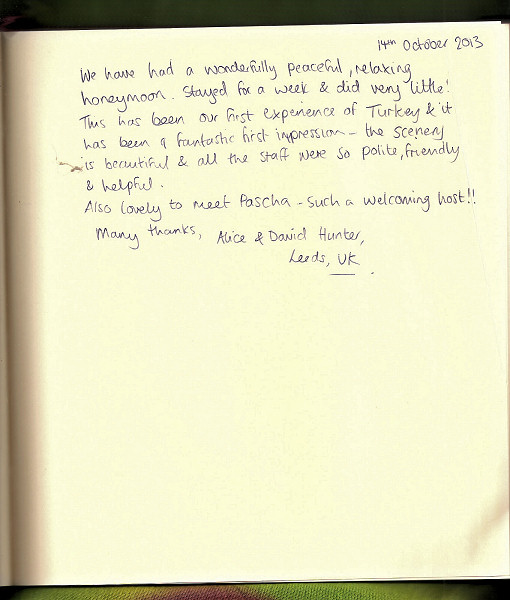 14th October 2013
We have had a wonderfully peaceful, relaxing
honeymoon. Stayed for a week & did very little!
This has been our first experience of Turkey & it
has been a fantastic first impression - the scenery
is beautiful & all the staff were so polite, friendly
& helpful.
Also lovely to meet Pascha - such a welcoming host!!
Many thanks, Alice & David Hunter,
Leeds, UK.